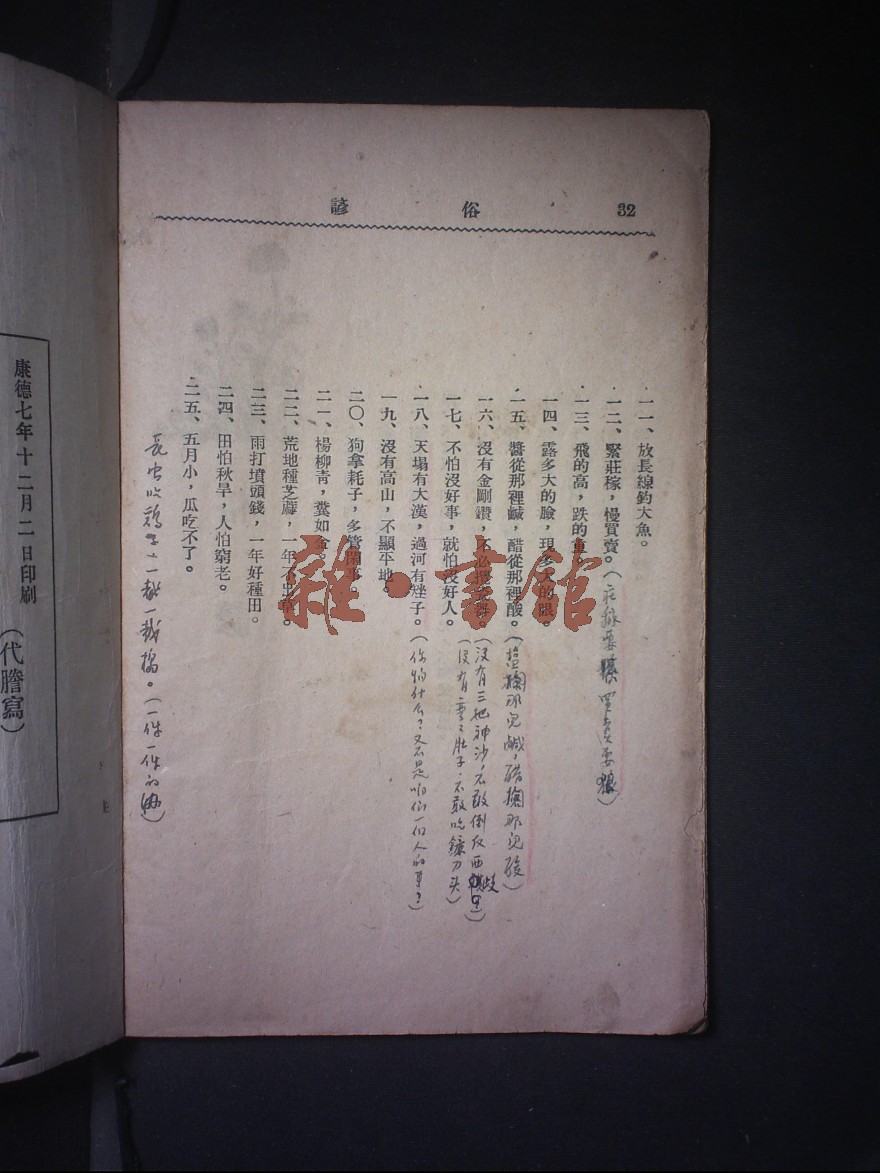 32 俗諺
一一、放長線釣大魚。
一二、緊莊稼，慢買賣。（莊稼要 買賣要狠）
一三、飛的高，跌的重。
一四、露多大的臉，現多大的眼。
一五、醬從那裡鹹，醋從那裡酸。（ 那兒鹹，醋 那兒酸）
一六、沒有金剛鑽，不必攬瓷器。（没有三把神沙，不敢倒反西岐）
一七、不怕沒好事，就怕沒好人。（没有弯弯肚子，不敢吃鐮刀头）
一八、天塌有大漢，過河有矬子。（你怕什么？又不是咱们一个人的事？）
一九、沒有高山，不顯平地。
二〇、狗拿耗子，多管閒事。
二一、楊柳青，糞如金。
二二、荒地種芝蔴，一年不出草。
二三、雨打墳頭錢，一年好種田。
二四、田怕秋旱，人怕窮老。
二五、五月小，瓜吃不了。
長虫吃 一截一截 。（一件一件的 ）
康德七年十二月二日印刷
（代謄寫）
雜·書館